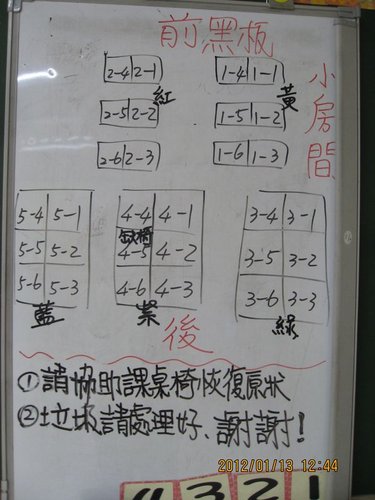 前黑板
2-4 2-1 1-4 1-1
紅 黃
2-5 2-2 1-5 1-2
2-6 2-3 1-6 1-3
小房間
5-4 5-1 4-4 4-1 3-4 3-1
5-5 5-2 4-5 4-2 3-5 3-2
5-6 5-3 4-6 4-3 3-6 3-3
藍 紫 綠
後
①請協助課桌椅恢復原狀
②垃圾請處理好、謝謝!
2012/01/13 12:44
4321